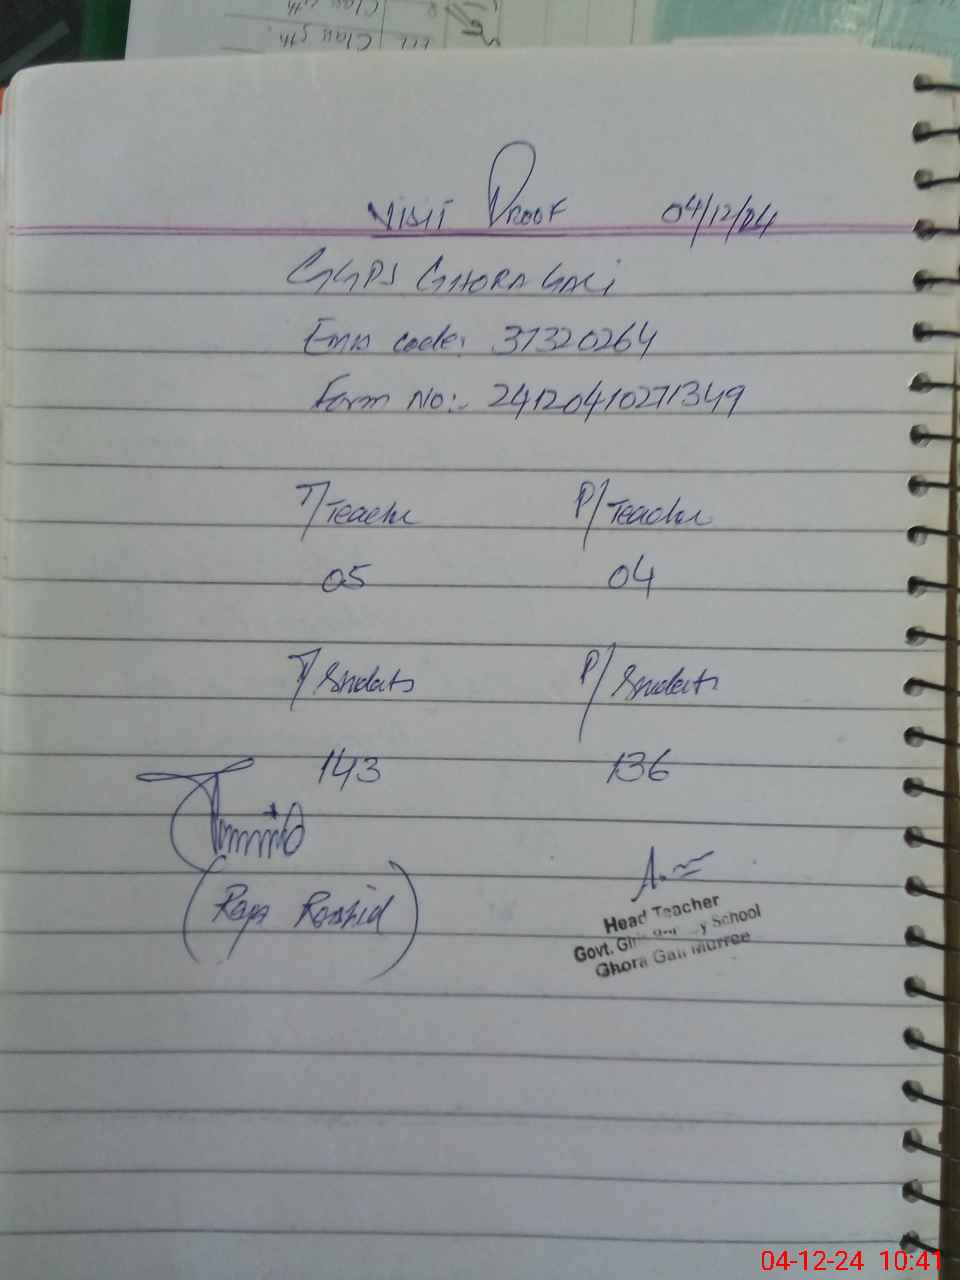 Class 5th
Visit Proof 04/12/04
GGPS GHORA GALI
Emis code: 37320264
Form No:- 24120410271349
T/Teacher P/Teacher
05 04
T/Students P/Students
143 136
(Raja Rashid)
Head Teacher
Govt. School
Ghora Gali Murree
04-12-24 10:41